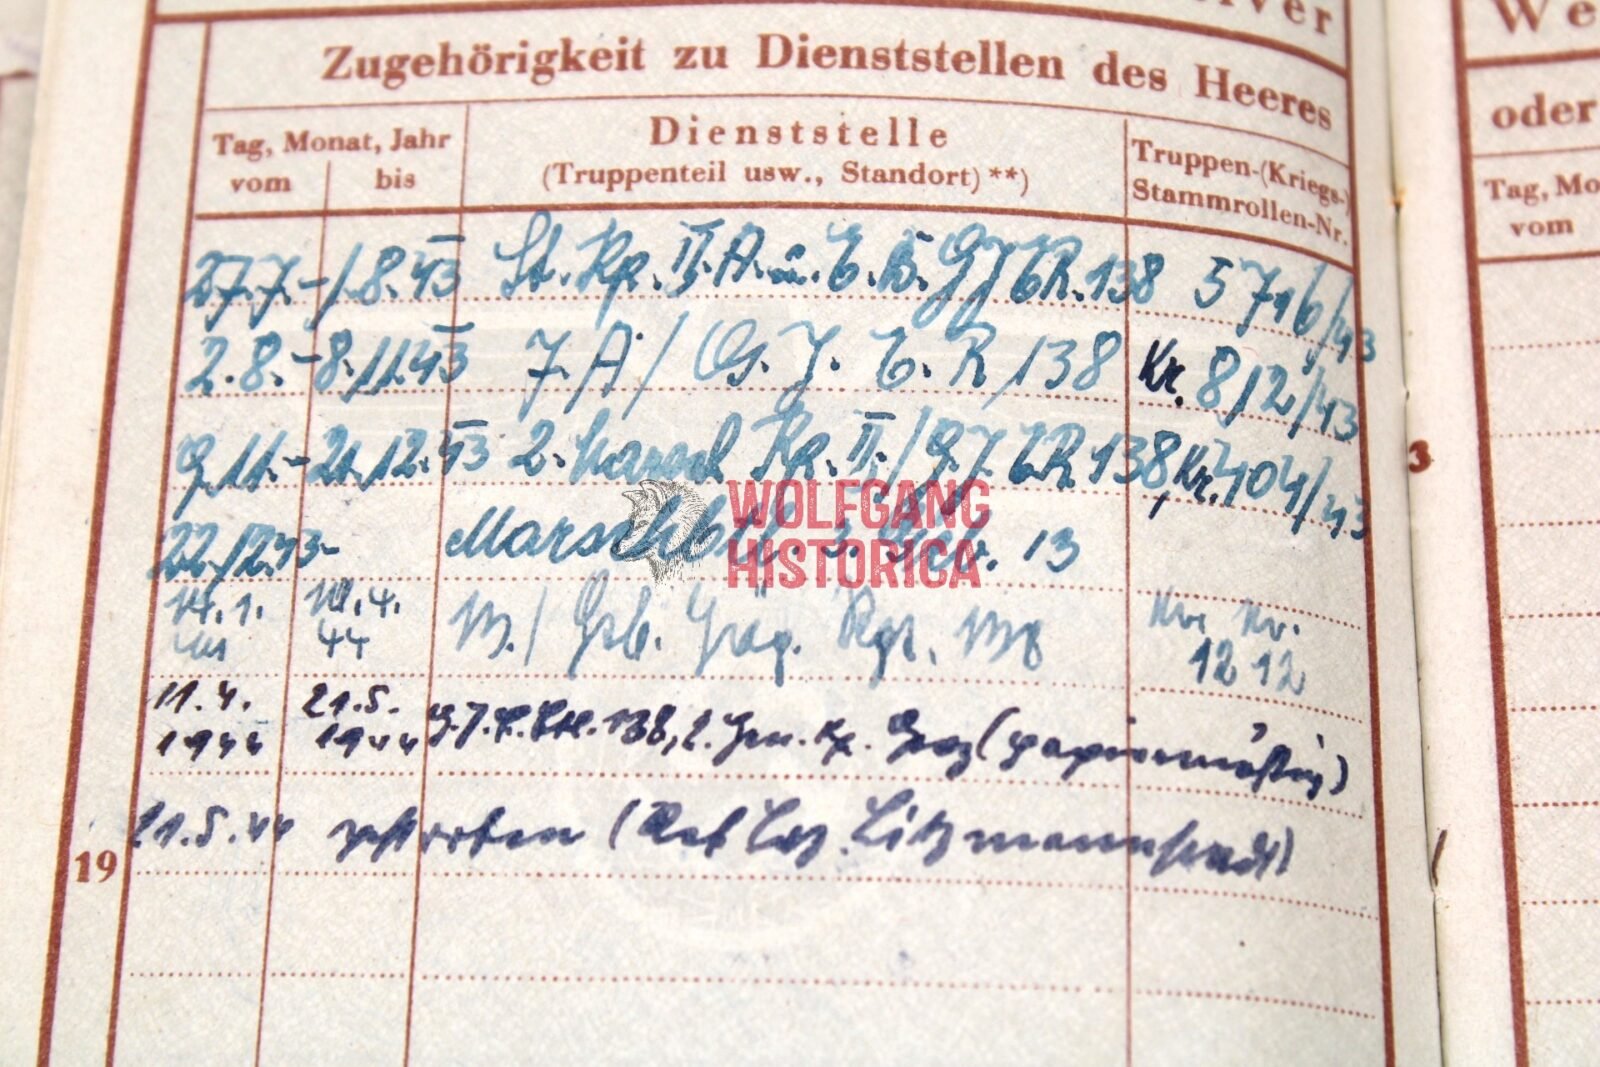 We
Zugehörigkeit zu Dienststellen des Heeres
oder
Tag, Monat, Jahr
vom bis
Dienststelle
(Truppenteil usw., Standort) **)
Truppen-(Kriegs-)
Stammrollen-Nr.
Tag, Mo
vom
27.7.-1.8.43 St. Kp. II. A.u.E.B. GJER.138 5 716/43
2.8.-8.11.43 7. A/ G.J.E.R 138 Kr. 812/43
9.11.-21.12.43 2. Marsch Kp. II./G.J.E.R. 138, Kr.
22.12.43- Marschbtl. 3. Geb. 13
14.1. .4. /Geb. Jäg. Rgt.
44 44 12 12
11.4. 21.5. G.J.E. 138, 2. Gen. Kp. Graz (papiermäßig)
1944 1944
21.5.44 gestorben (Res Laz. Litzmannstadt)
19
3
WOLFGANG
HISTORICA